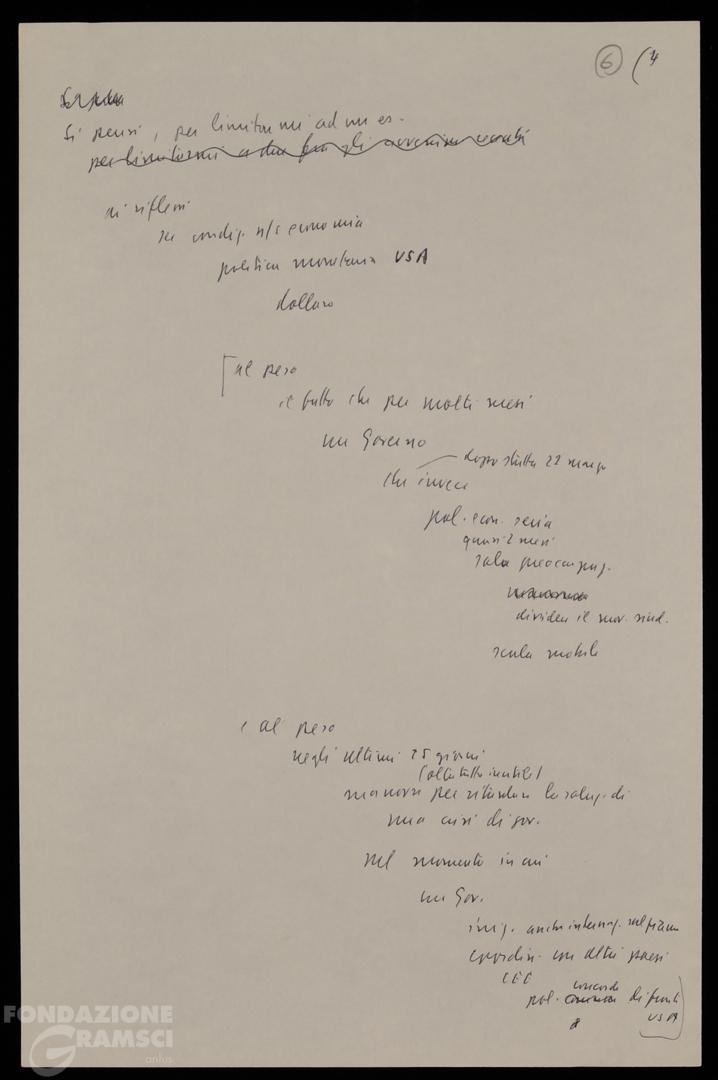 6 (4
Si pensi, per limitarmi ad un es.
per limitarmi a due fra gli avvenim. recenti
ai riflessi
su condiz. n/s economia
politica monetaria USA
dollaro
[al peso
il fatto che per molti mesi
un Governo
dopo 22 marzo
che invece
pol. econ. seria
quasi 2 mesi
sola preoccupaz.
dividere il mov. sind.
scala mobile
e al peso
negli ultimi 25 giorni
(oltretutto inutile)
manovre per ritardare la soluz. di
una crisi di gov.
nel momento in cui
un Gov.
anche internaz. sul piano
coordin. con altri paesi
CEE
concorde
pol. comune di fronte
USA
FONDAZIONE
GRAMSCI
onlus